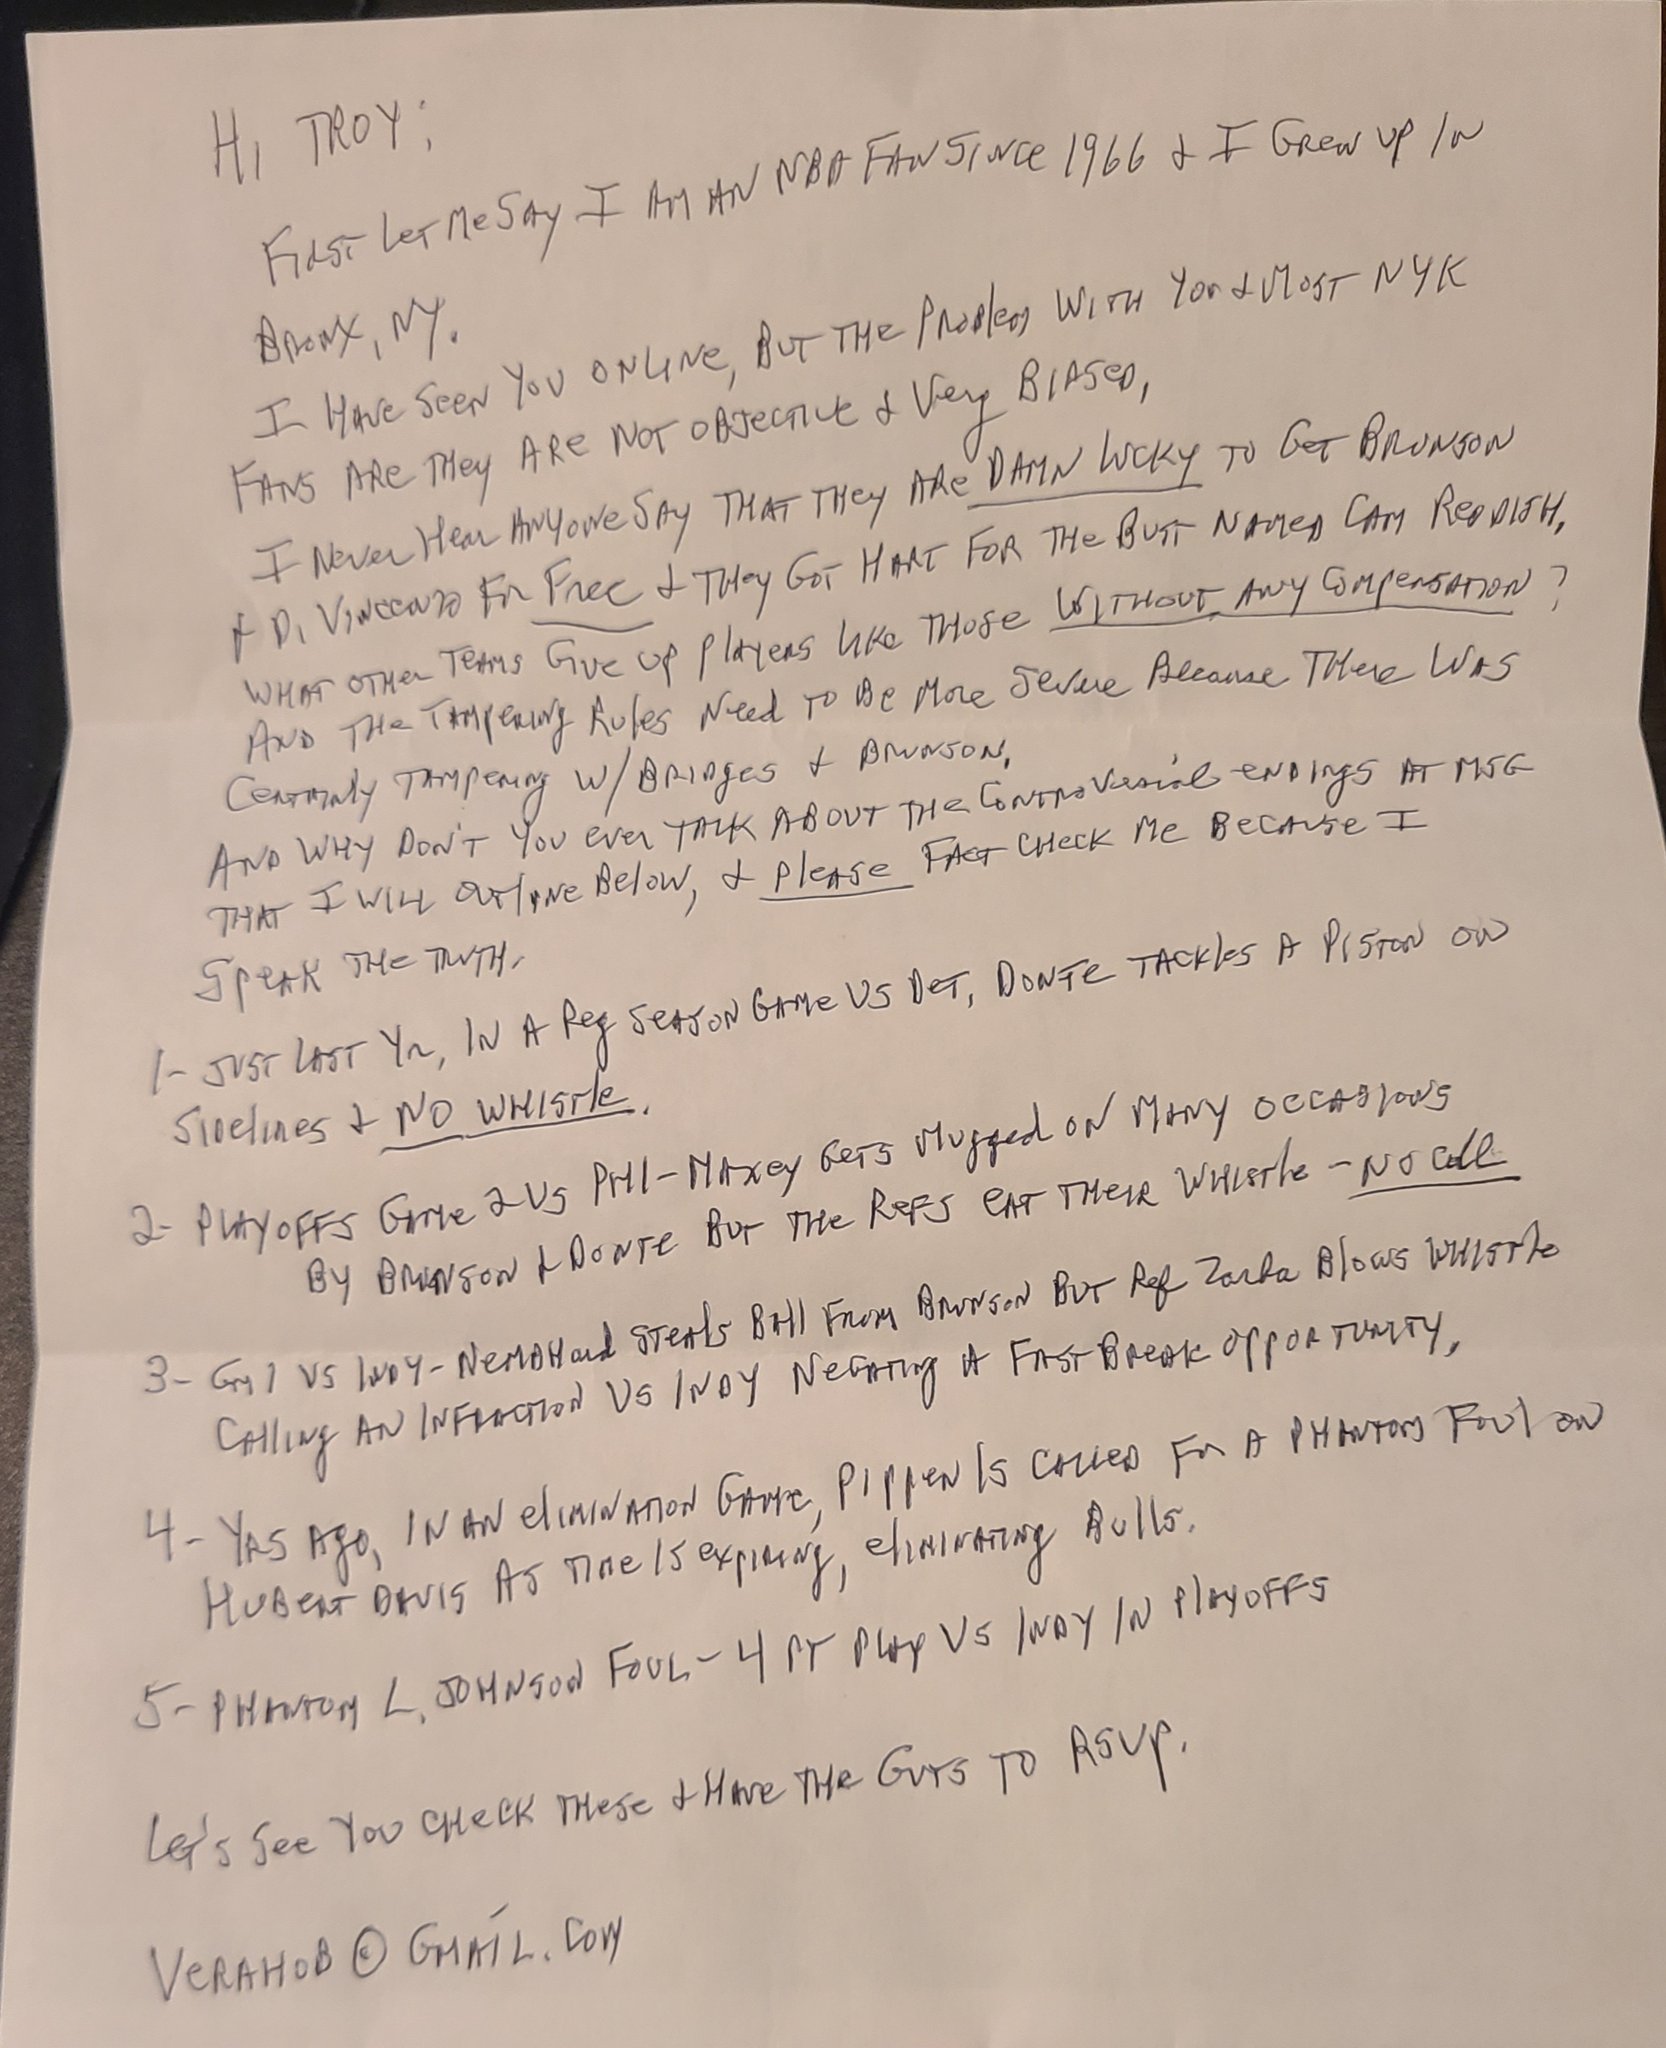 HI TROY;
FIRST LET ME SAY I AM AN NBA FAN SINCE 1966 & I GREW UP IN
BRONX, NY.
I HAVE SEEN YOU ONLINE, BUT THE PROBLEM WITH YOU & MOST NYK
FANS ARE THEY ARE NOT OBJECTIVE & VERY BIASED,
I NEVER HEAR ANYONE SAY THAT THEY ARE DAMN LUCKY TO GET BRUNSON
& DI VINCENZO FOR FREE & THEY GOT HART FOR THE BUST NAMED CAM REDDISH,
WHAT OTHER TEAMS GIVE UP PLAYERS LIKE THOSE WITHOUT ANY COMPENSATION?
AND THE TAMPERING RULES NEED TO BE MORE SEVERE BECAUSE THERE WAS
CERTAINLY TAMPERING W/BRIDGES & BRUNSON,
AND WHY DON'T YOU EVER TALK ABOUT THE CONTROVERSIAL ENDINGS AT MSG
THAT I WILL OUTLINE BELOW, & PLEASE FACT CHECK ME BECAUSE I
SPEAK THE TRUTH.
1- JUST LAST YR, IN A REG SEASON GAME VS DET, DONTE TACKLES A PISTON ON
SIDELINES & NO WHISTLE.
2- PLAYOFFS GAME 2 VS PHI-MAXEY GETS MUGGED ON MANY OCCASIONS
BY BRUNSON & DONTE BUT THE REFS EAT THEIR WHISTLE - NO CALL
3- GM 1 VS INDY-NEMBHARD STEALS BALL FROM BRUNSON BUT REF ZARBA BLOWS WHISTLE
CALLING AN INFRACTION VS INDY NEGATING A FAST BREAK OPPORTUNITY,
4- YRS AGO, IN AN ELIMINATION GAME, PIPPEN IS CALLED FOR A PHANTOM FOUL ON
HUBERT DAVIS AS TIME IS EXPIRING, ELIMINATING BULLS.
5- PHANTOM L. JOHNSON FOUL- 4 PT PLAY VS INDY IN PLAYOFFS
LET'S SEE YOU CHECK THESE & HAVE THE GUTS TO RSVP.
VERAHOB@GMAIL.COM